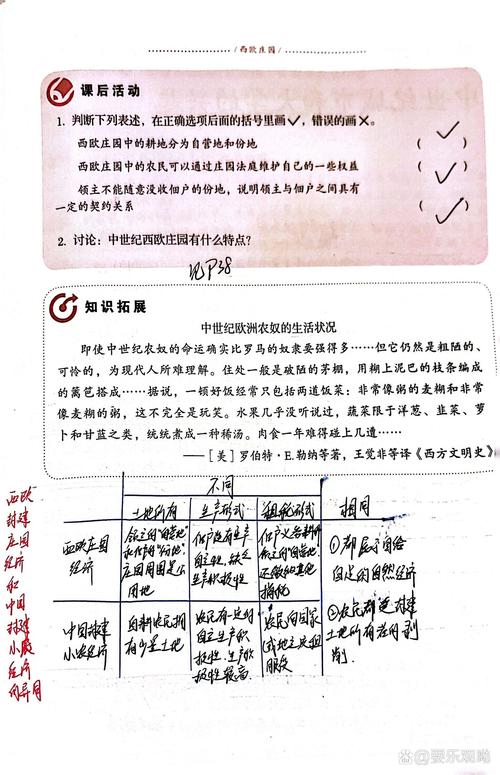 西欧庄园
课后活动
1. 判断下列表述，在正确选项后面的括号里画✓，错误的画×。
西欧庄园中的耕地分为自营地和份地 (✓)
西欧庄园中的农民可以通过庄园法庭维护自己的一些权益 (✓)
领主不能随意没收佃户的份地，说明领主与佃户之间具有
一定的契约关系 (✓)
2. 讨论：中世纪西欧庄园有什么特点？
见P38
知识拓展
中世纪欧洲农奴的生活状况
即使中世纪农奴的命运确实比罗马的奴隶要强得多……但它仍然是粗陋的、
可怜的，为现代人所难理解。住处一般是破陋的茅棚，用糊上泥巴的枝条编成
的篱笆搭成……据说，一顿好饭经常只包括两道饭菜：非常像粥的麦糊和非常
像麦糊的粥，这不完全是玩笑。水果几乎没听说过，蔬菜限于洋葱、韭菜、萝
卜和甘蓝之类，统统煮成一种稀汤。肉食一年难得碰上几遭……
——［美］罗伯特·E.勒纳等著，王觉非等译《西方文明史》
西欧
封建
庄园
经济
和
中国
封建
小农
经济
的异同
不同
土地所有
生产形式
租税形式
相同
西欧庄园
经济
领主的“自营地”
和佃户的“份地”，
庄园周围是公
用地
佃户没有生产
自主性，缺乏
生产积极性
佃户义务耕种
领主的“自营地”
还缴纳其他
捐税
①都属于自给
自足的自然经济
中国封建
小农经济
自耕农民拥
有少量土地
农民有一定的
自主生产积
极性，生产积
极性较高
农民向国家
或地主交租
服役
②农民都受封建
土地所有者的剥
削。
@要乐观哟